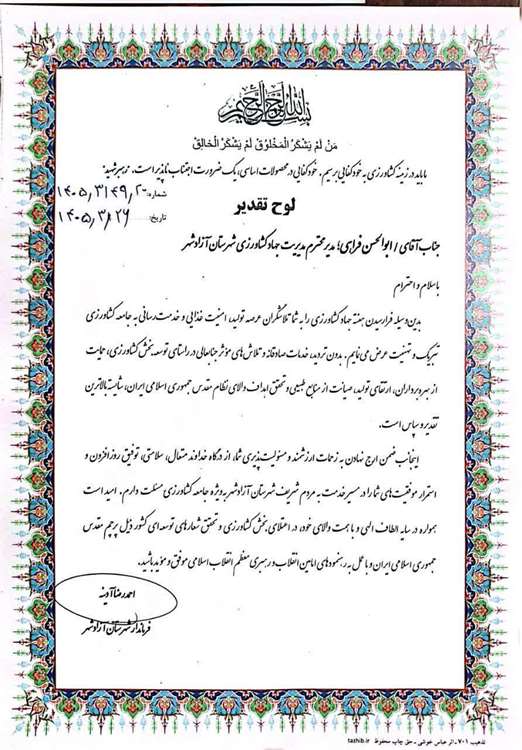 بسم الله الرحمن الرحیم
مَن لَم یَشکُر المَخلوق لَم یَشکُر الخالِق
ما باید در زمینه کشاورزی به خودکفایی برسیم. خودکفایی در محصولات اساسی، یک ضرورت اجتناب ناپذیر است. رهبر شهید
شماره: ۱۴۰۵,۳۱۴۹,۲۰
لوح تقدیر
تاریخ: ۱۴۰۵,۳,۲۶
جناب آقای / ابوالحسن فراهی؛ مدیر محترم مدیریت جهاد کشاورزی شهرستان آزادشهر
با سلام و احترام
بدین وسیله فرارسیدن هفته جهاد کشاورزی را به شما تلاشگران عرصه تولید، امنیت غذایی و خدمت رسانی به جامعه کشاورزی
تبریک و تهنیت عرض می نمایم. بدون تردید، خدمات صادقانه و تلاش های مؤثر جنابعالی در راستای توسعه بخش کشاورزی، حمایت
از بهره برداران، ارتقای تولید، صیانت از منابع طبیعی و تحقق اهداف والای نظام مقدس جمهوری اسلامی ایران، شایسته بالاترین
تقدیر و سپاس است.
اینجانب ضمن ارج نهادن به زحمات ارزشمند و مسئولیت پذیری شما، از درگاه خداوند متعال، سلامتی، توفیق روزافزون و
استمرار موفقیت های شما را در مسیر خدمت به مردم شریف شهرستان آزادشهر به ویژه جامعه کشاورزی مسئلت دارم. امید است
همواره در سایه الطاف الهی و با همت والای خود، در اعتلای بخش کشاورزی و تحقق شعارهای توسعه ای کشور ذیل پرچم مقدس
جمهوری اسلامی ایران و با عمل به رهنمودهای امامین انقلاب و رهبری معظم انقلاب اسلامی موفق و مؤید باشید.
احمدرضا آدینه
فرماندار شهرستان آزادشهر
تذهیب ۷۰۱ ـ اثر عباس خوشی ـ حق چاپ محفوظ tazhib.ir